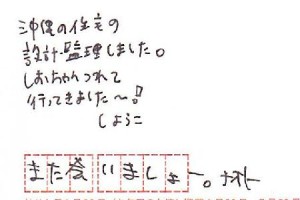 沖縄の住宅の
設計・監理しました。
しおちゃんつれて
行ってきました〜!
しょうこ
また会いましょー。ナオト